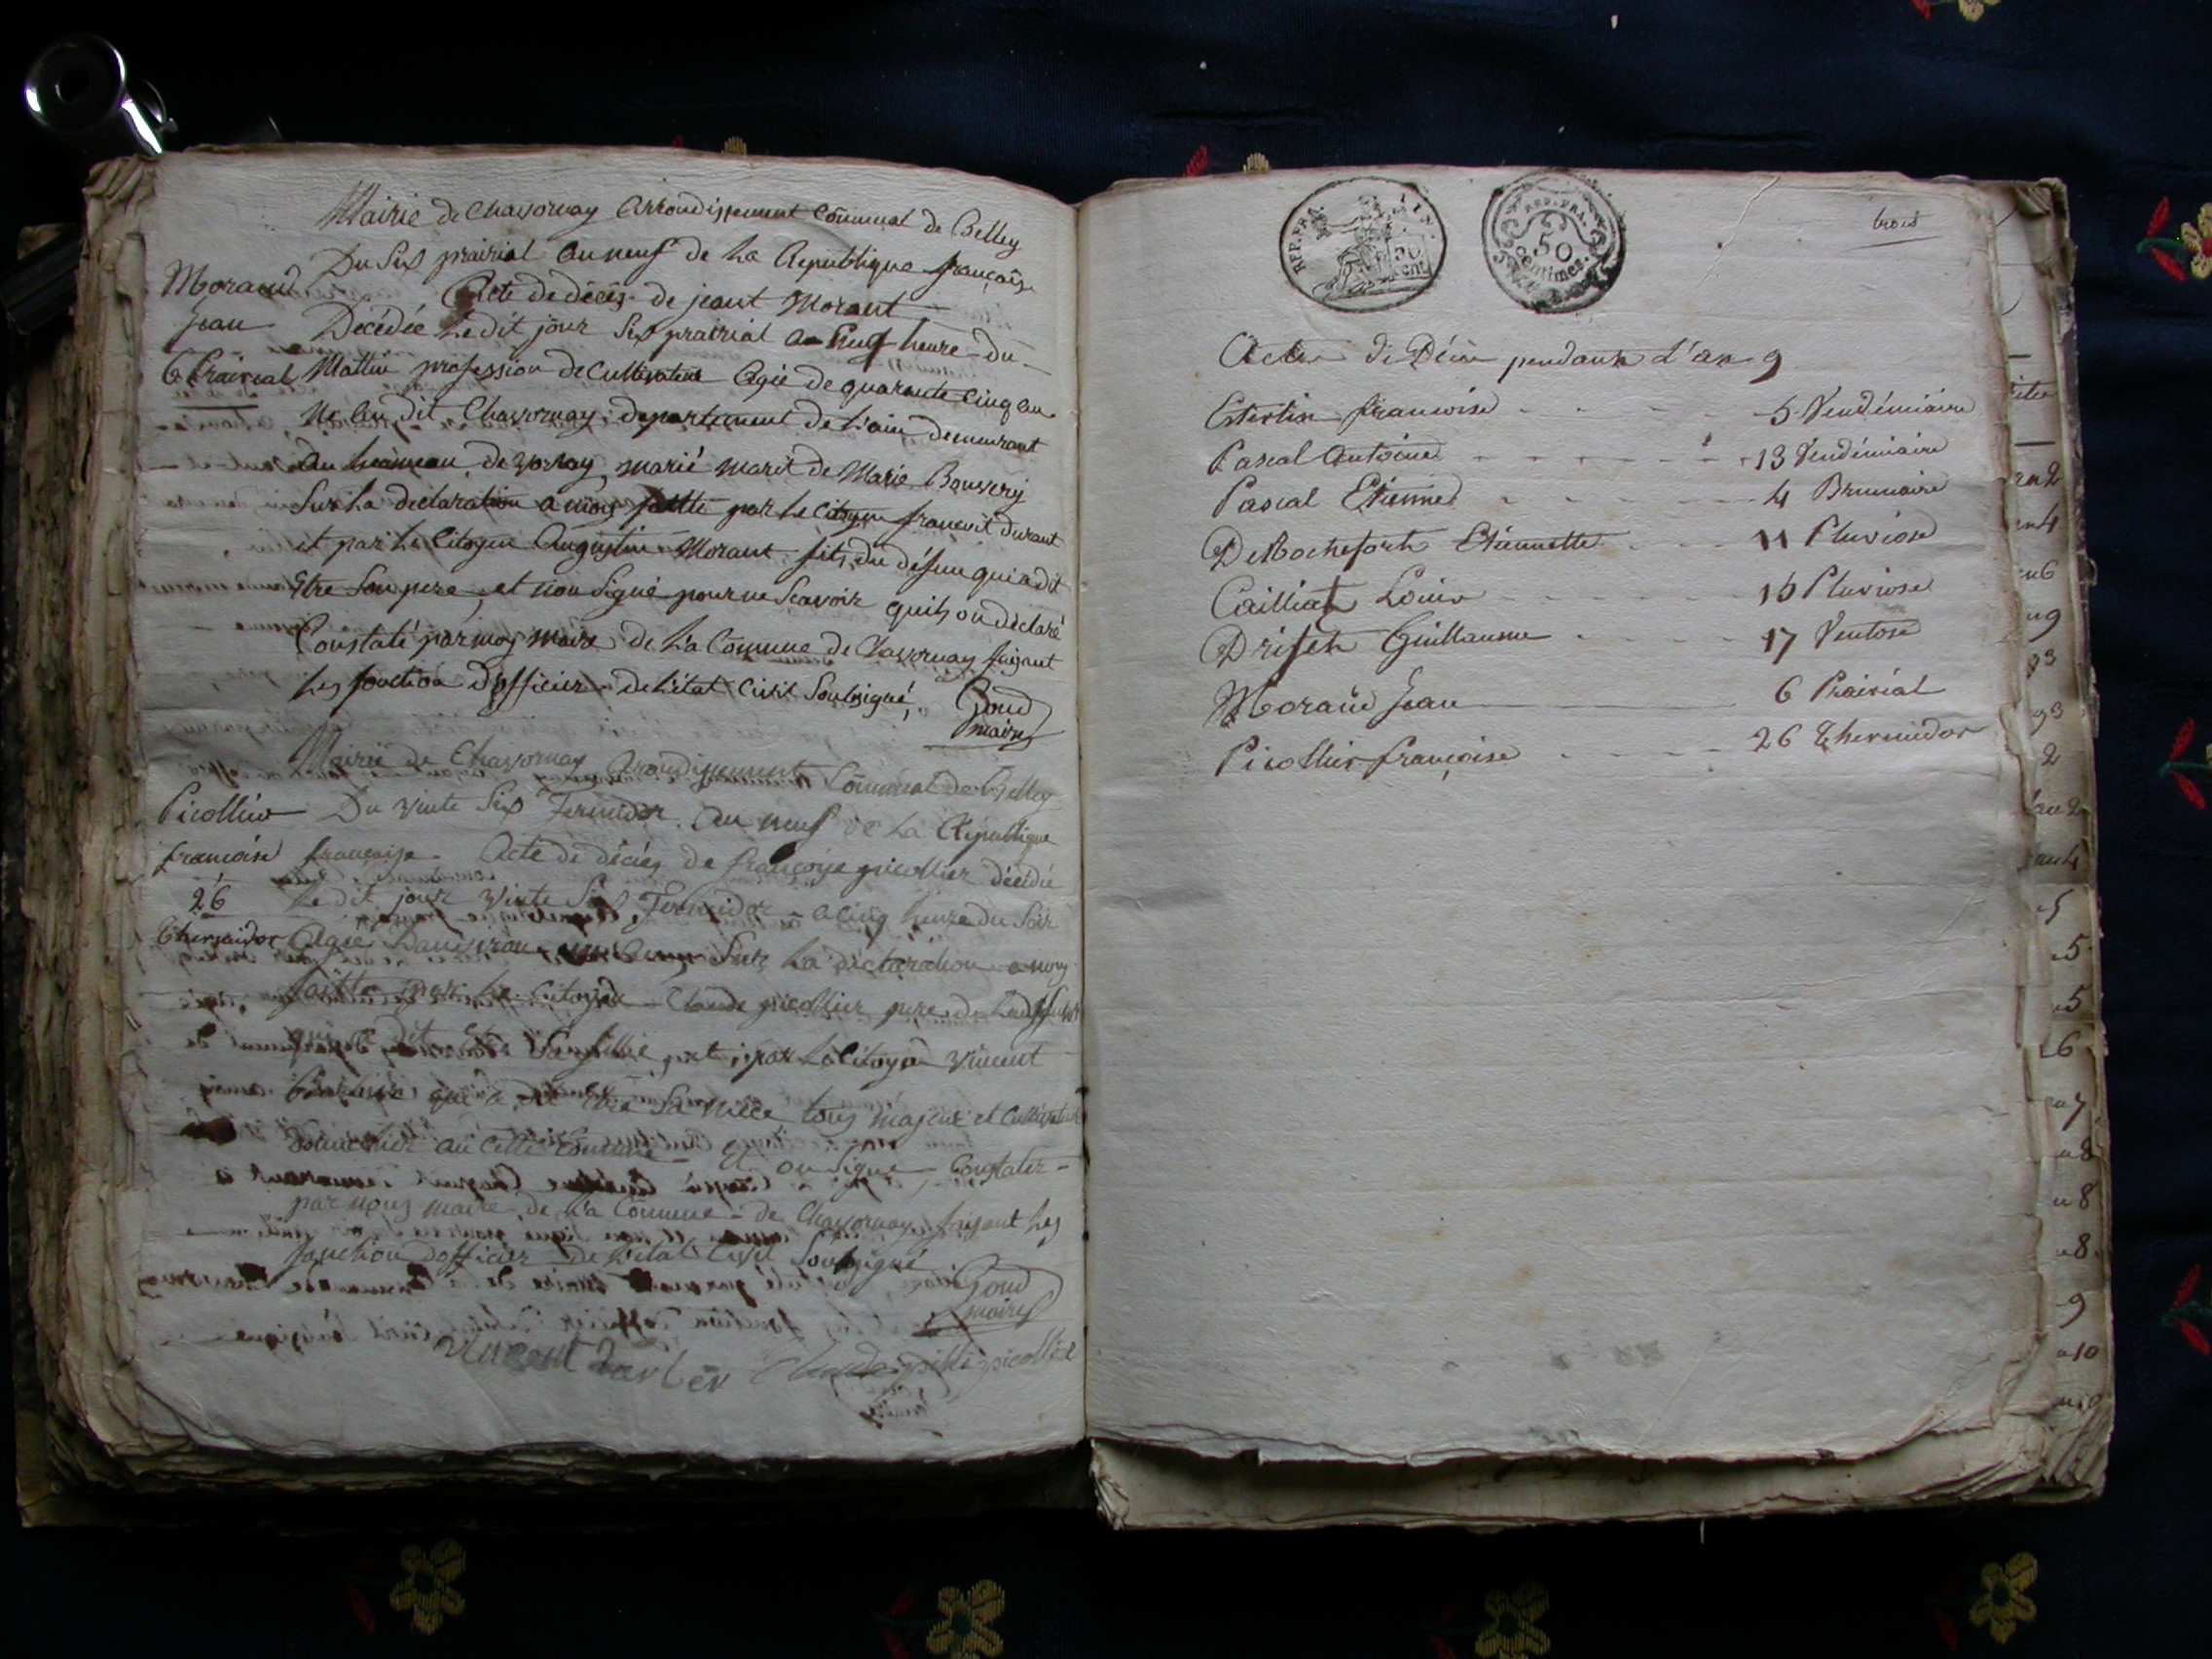 Mairie de Chavornay Arrondissement Communal de Belley
Du Six prairial an neuf de la Republique française
Morand
Jean
6 Prairial
Acte de décés de jeant Morant
Décédée le dit jour Six prairial a heure du
Mattin profession de Cultivateur Agée de quarante cinq an
dit Chavornay departement de L'ain demeurant
au hameau de vorvay marié marit de Marie Bouvery
Sur la declaration a moy faitte par le Citoyen francoit durant
et par le Citoyen Augustin Morant fils du défun qui a dit
Etre Son pere, et non Signé pour ne Scavoir quils on déclaré
Constaté par moy maire de la Commune de Chavornay faisant
les fonction d'officier de l'état Civil Soubsigné, Goud
maire
Mairie de Chavornay Arondissement Communal de Belley
Picollier
francoise
26
thermidor
Du vinte Six Termidor an neuf de la Republique
française. Acte de décés de françoise picollier décédée
Le dit jour vinte Six Termidor a cinq heure du Soir
Agée Sur la déclaration a nous
faitte par le Citoyen Claude picollier pere de
dit Sa fillie, et par le Citoyen vincent
qui a dit être Sa niece tous majeur et Cultivateur
au cette Commune et on Signé Constater
par nous maire de la Commune de Chavornay faisant les
fonction d'officier de l'état Civil Soubsigné
Goud
maire
vincent barber Claude picollier
REP. FRA. 50 cent
REP. FRA. 50 centimes.
trois
Actes de Décès pendant l'an 9
francoise 5 Vendémiaire
Pascal Antoine 13 Vendémiaire
Pascal Etienne 4 Brumaire
DeRochefort Etiennette 11 Pluviose
Cailliat Louis 16 Pluviose
Guillaume 17 Ventose
Morand Jean 6 Prairial
Picollier françoise 26 thermidor